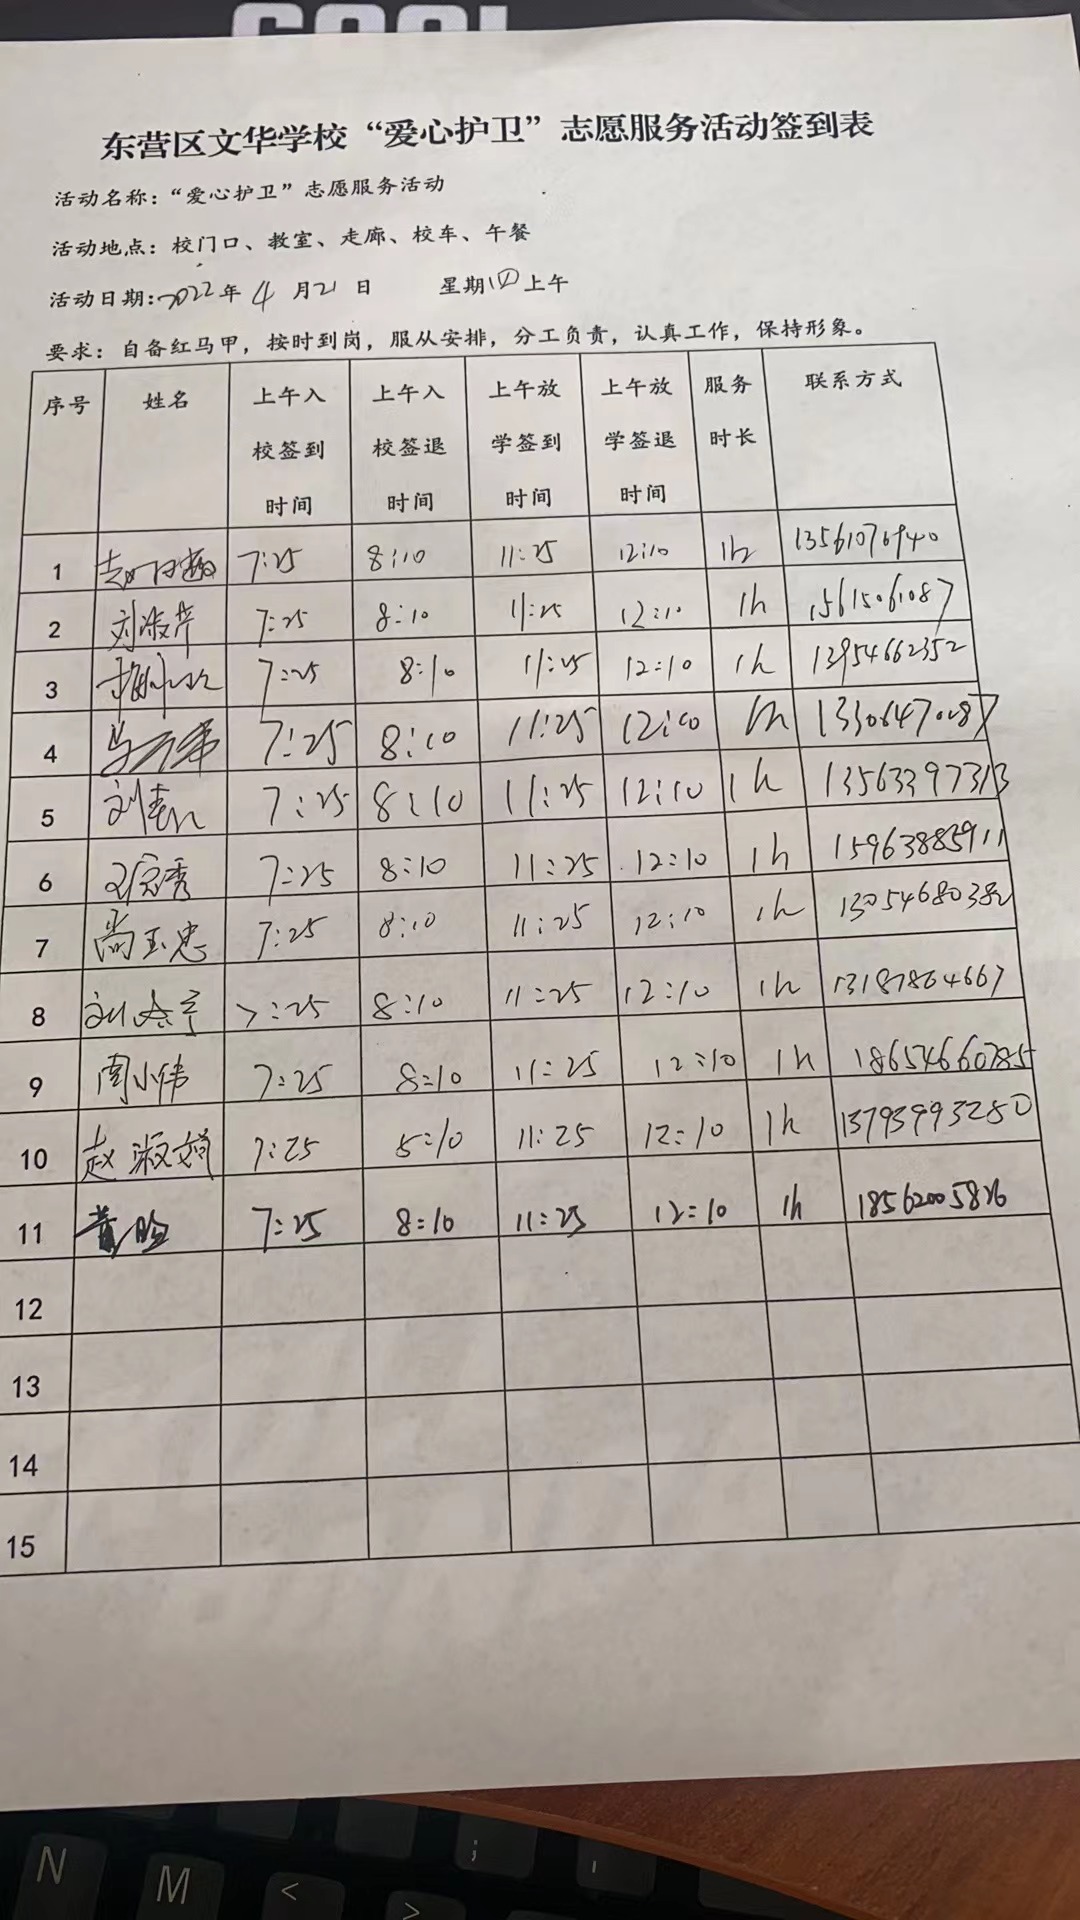 东营区文华学校“爱心护卫”志愿服务活动签到表
活动名称：“爱心护卫”志愿服务活动
活动地点：校门口、教室、走廊、校车、午餐
活动日期:2022年4月21日 星期四上午
要求：自备红马甲，按时到岗，服从安排，分工负责，认真工作，保持形象。
序号 姓名 上午入校签到时间 上午入校签退时间 上午放学签到时间 上午放学签退时间 服务时长 联系方式
1 7:25 8:10 11:25 12:10 1h
2 刘淑芹 7:25 8:10 11:25 12:10 1h 15615061087
3 7:25 8:10 11:25 12:10 1h 13954662352
4 7:25 8:10 11:25 12:10 1h 13306470087
5 7:25 8:10 11:25 12:10 1h 13563397313
6 7:25 8:10 11:25 12:10 1h 15963885911
7 尚玉忠 7:25 8:10 11:25 12:10 1h 13054680382
8 7:25 8:10 11:25 12:10 1h 13187864667
9 周小伟 7:25 8:10 11:25 12:10 1h 18654660785
10 赵淑娟 7:25 8:10 11:25 12:10 1h 13793993280
11 7:25 8:10 11:25 12:10 1h 18562005826
12
13
14
15
N
M
<
>
;